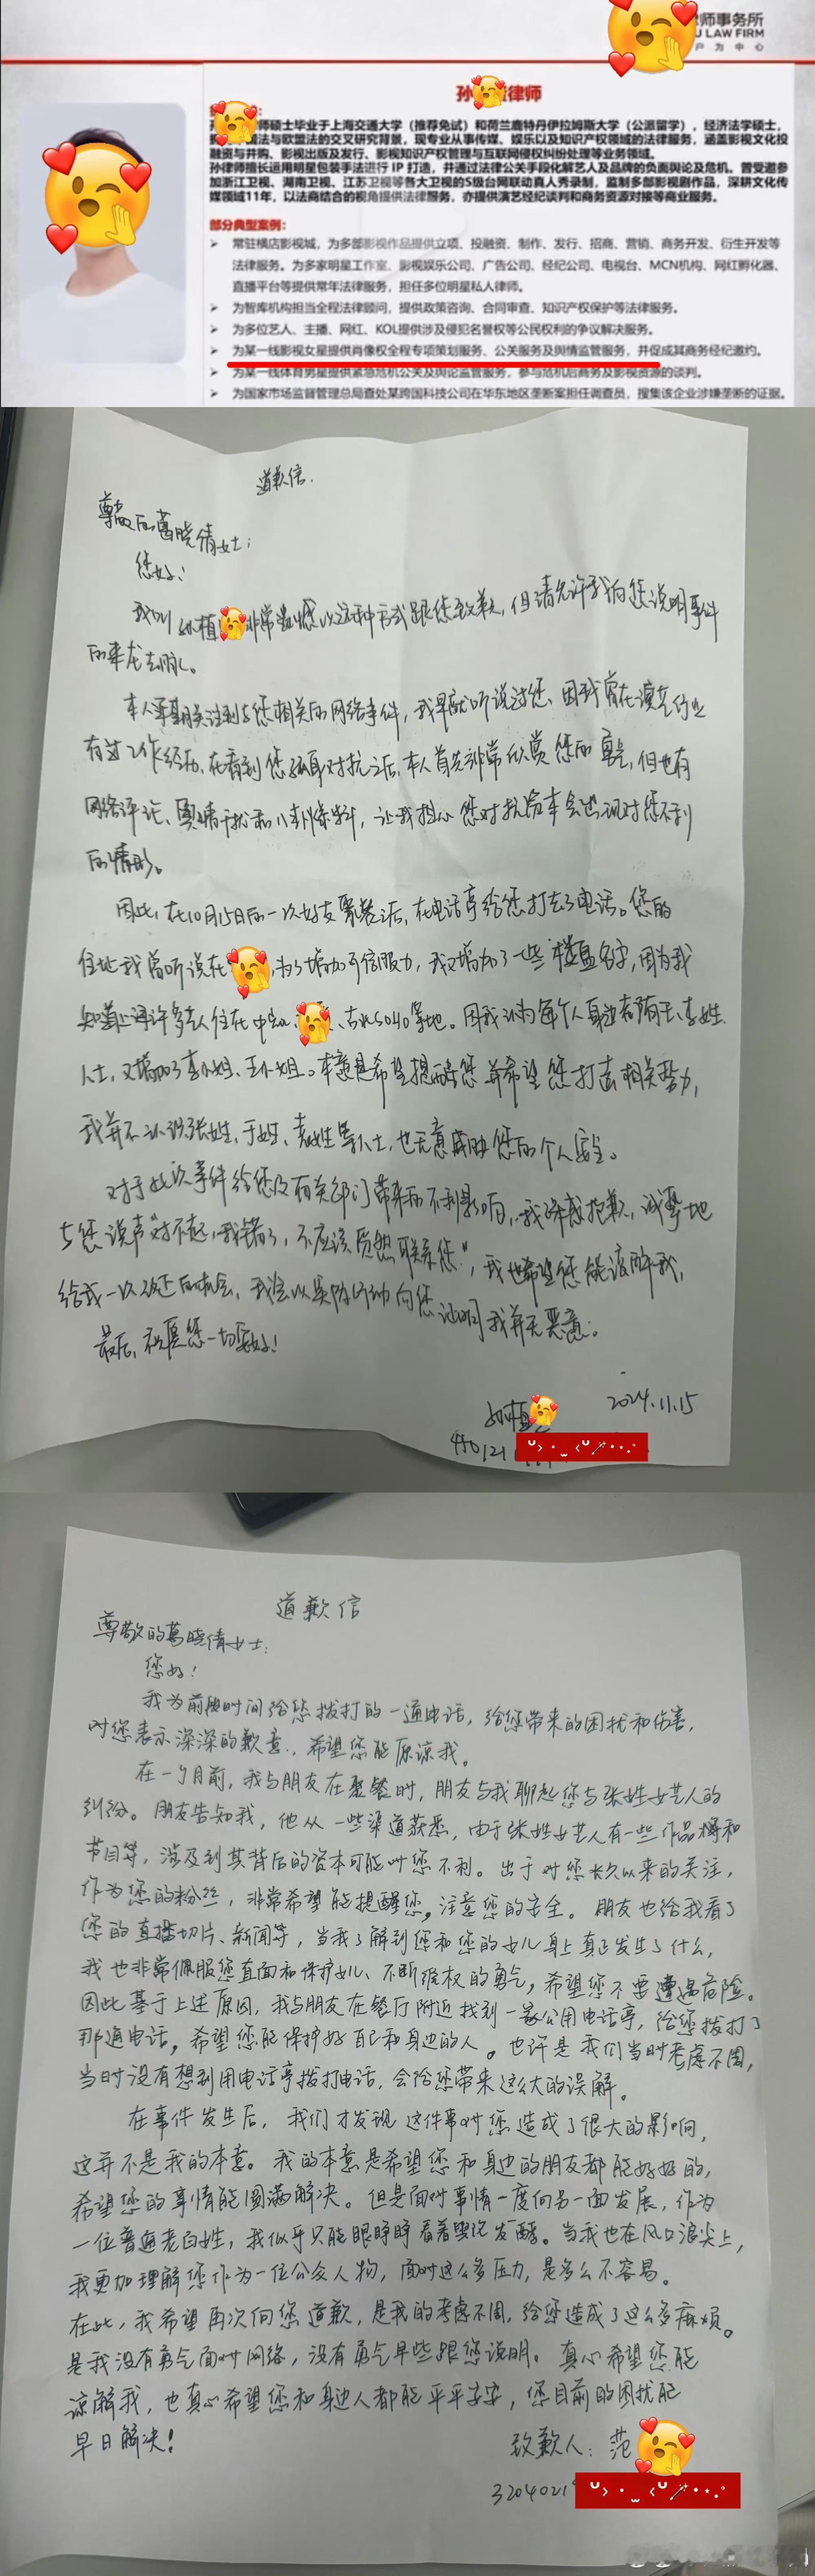 师事务所
U LAW FIRM
户为中心
孙 律师
师硕士毕业于上海交通大学（推荐免试）和荷兰鹿特丹伊拉姆斯大学（公派留学），经济法学硕士，
法与欧盟法的交叉研究背景，现专业从事传媒、娱乐以及知识产权领域的法律服务，涵盖影视文化投
融资与并购、影视出版及发行、影视知识产权管理与互联网侵权纠纷处理等业务领域。
孙律师擅长运用明星包装手法进行 IP 打造，并通过法律公关手段化解艺人及品牌的负面舆论及危机。曾受邀参
加浙江卫视、湖南卫视、江苏卫视等各大卫视的S级台网联动真人秀录制，监制多部影视剧作品，深耕文化传
媒领域11年，以法商结合的视角提供法律服务，亦提供演艺经纪谈判和商务资源对接等商业服务。
部分典型案例：
常驻横店影视城，为多部影视作品提供立项、投融资、制作、发行、招商、营销、商务开发、衍生开发等
法律服务。为多家明星工作室、影视娱乐公司、广告公司、经纪公司、电视台、MCN机构、网红孵化器、
直播平台等提供常年法律服务，担任多位明星私人律师。
为智库机构担当全程法律顾问，提供政策咨询、合同审查、知识产权保护等法律服务。
为多位艺人、主播、网红、KOL提供涉及侵犯名誉权等公民权利的争议解决服务。
为某一线影视女星提供肖像权全程专项策划服务、公关服务及舆情监管服务，并促成其商务经纪邀约。
为某一线体育男星提供紧急危机公关及舆论监管服务，参与危机后商务及影视资源的谈判。
为国家市场监督管理总局查处某跨国科技公司在华东地区垄断案担任调查员，搜集该企业涉嫌垄断的证据。
道歉信.
尊敬的葛晓倩女士：
您好！
我叫孙植 非常遗憾以这种方式跟您致歉，但请允许我向您说明事件
的来龙去脉。
本人早期关注到与您相关的网络事件，我早就听说过您、因我曾在演艺行业
有过工作经历、在看到您孤身对抗之后，本人首先非常欣赏您的勇气，但也有
网络评论、舆情干扰和八卦爆料，让我担心您对抗资本会出现对您不利
的情形。
因此，在10月15日的一次好友聚餐后，在电话亭给您打去了电话。您的
住址我曾听说在 ，为了增加可信服力，我又增加了一些楼盘名字，因为我
知道上海许多艺人住在中 、古北SOHO等地。因我认为每个人身边都有王、李姓
人士，又增加了李小姐、王小姐。本意是希望提醒您并希望您打击相关势力，
我并不认识张姓、于姓、袁姓等人士，也无意威胁您的个人安全。
对于此次事件给您及有关部门带来的不利影响，我深感抱歉，诚挚地
与您说声“对不起，我错了，不应该贸然联系您”，我也希望您能谅解我，
给我一次改正的机会，我会以实际行动向您证明我并无恶意。
最后，祝愿您一切安好！
孙植 2024.11.15
道歉信
尊敬的葛晓倩女士：
您好！
我为前段时间给您拨打的一通电话，给您带来的困扰和伤害，
对您表示深深的歉意，希望您能原谅我。
在一个月前，我与朋友在聚餐时，朋友与我聊起您与张姓女艺人的
纠纷。朋友告知我，他从一些渠道获悉，由于张姓女艺人有一些作品播和
节目等，涉及到其背后的资本可能对您不利。出于对您长久以来的关注，
作为您的粉丝，非常希望能提醒您，注意您的安全。朋友也给我看了
您的直播切片、新闻等，当我了解到您和您的女儿身上真正发生了什么，
我也非常佩服您直面和保护女儿、不断维权的勇气，希望您不要遭遇危险。
因此基于上述原因，我与朋友在餐厅附近找到一家公用电话亭，给您拨打了
那通电话，希望您能保护好自己和身边的人。也许是我们当时考虑不周，
当时没有想到用电话亭拨打电话，会给您带来这么大的误解。
在事件发生后，我们才发现这件事对您造成了很大的影响，
这并不是我的本意。我的本意是希望您和身边的朋友都能好好的，
希望您的事情能圆满解决。但是面对事情一度向另一面发展，作为
一位普通老百姓，我似乎只能眼睁睁看着舆论发酵。当我也在风口浪尖上，
我更加理解您作为一位公众人物，面对这么多压力，是多么不容易。
在此，我希望再次向您道歉，是我的考虑不周，给您造成了这么多麻烦。
是我没有勇气面对网络，没有勇气早些跟您说明。真心希望您能
谅解我，也真心希望您和身边人都能平平安安，您目前的困扰能
早日解决！
致歉人：范
3204021